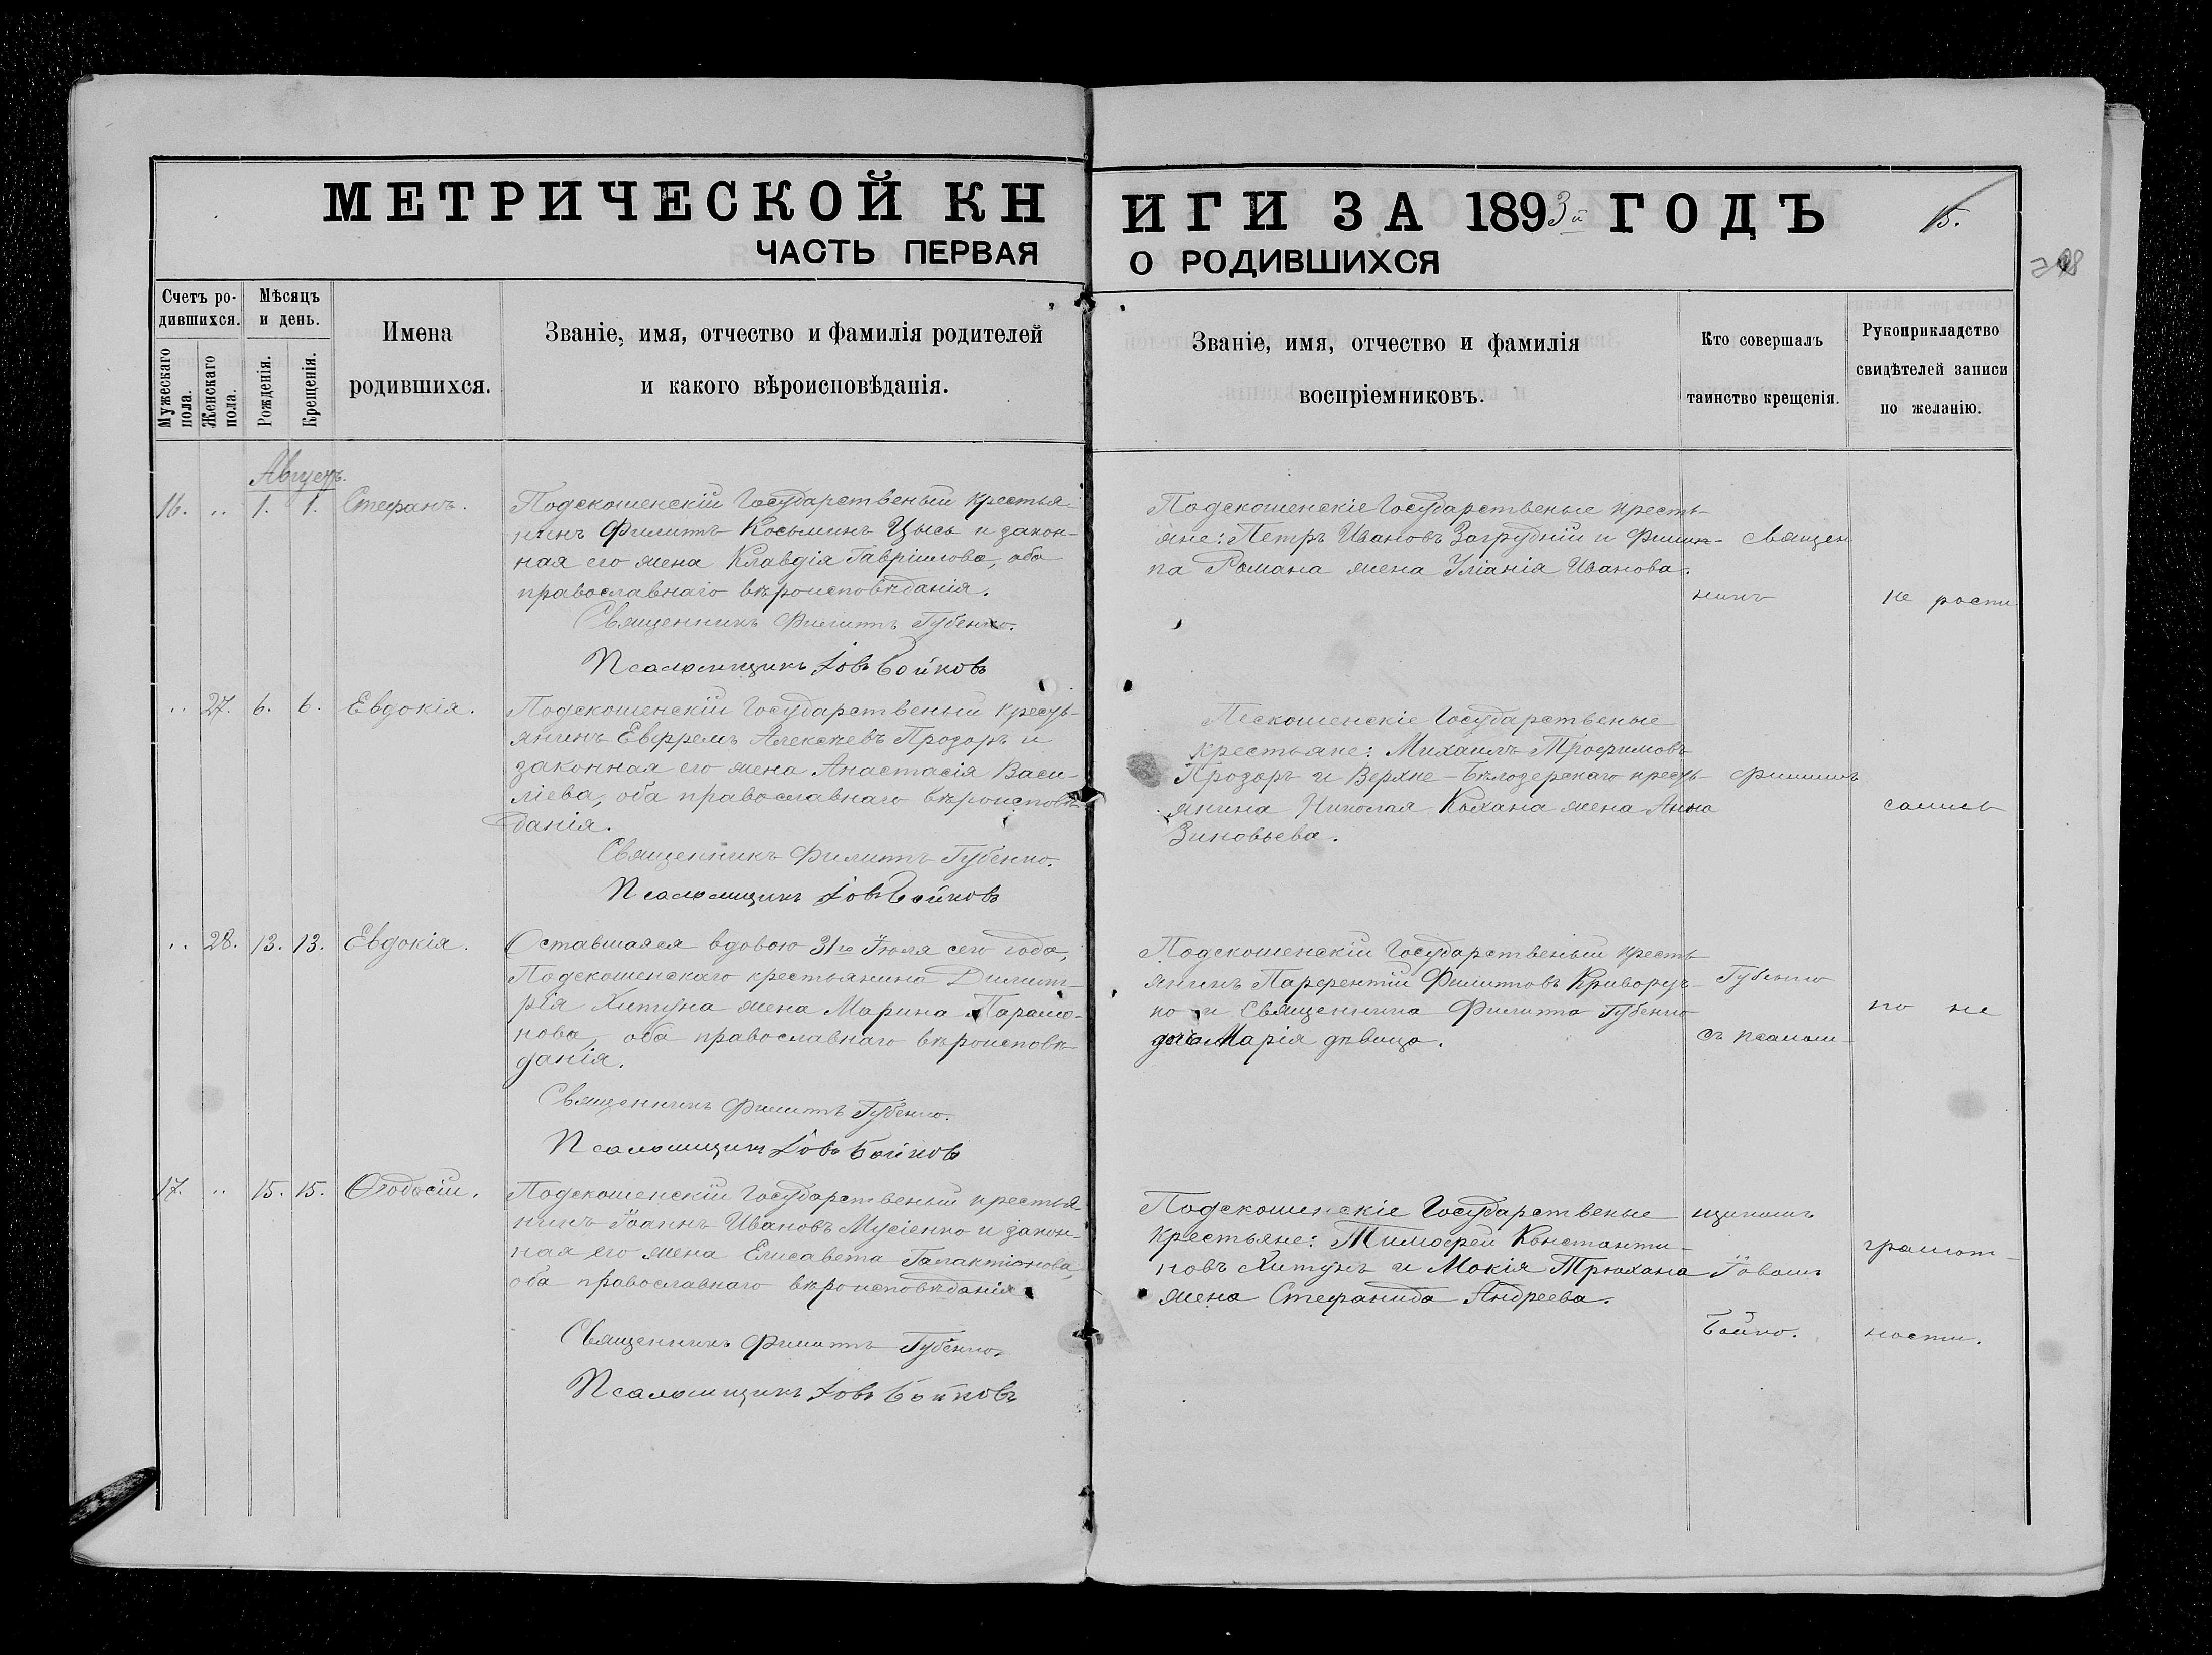 МЕТРИЧЕСКОЙ КНИГИ ЗА 1893й ГОДЪ
15.
ЧАСТЬ ПЕРВАЯ О РОДИВШИХСЯ
Счетъ ро-
дившихся.
Мужескаго пола.
Женскаго пола.
Мѣсяцъ
и день.
Рожденія.
Крещенія.
Имена
родившихся.
Званіе, имя, отчество и фамилія родителей
и какого вѣроисповѣданія.
Званіе, имя, отчество и фамилія
воспріемниковъ.
Кто совершалъ
таинство крещенія.
Рукоприкладство
свидѣтелей записи
по желанію.
Августъ.
16. „ 1. 1. Стефанъ.
Подскошенскій Государственый крестья
нинъ Филиппъ Косьминъ Цысь и закон-
ная его жена Клавдія Гавріилова, оба
православнаго вѣроисповѣданія.
Священникъ Филиппъ Губенко.
Псаломщикъ Іовъ Бойковъ
Подскошенскіе Государственые кресть-
яне: Петръ Ивановъ Загрудній и Филип-
па Романа жена Уліанія Иванова.
„ 27. 6. 6. Евдокія.
Подскошенскій Государственый кресть-
янинъ Ефремъ Алексѣевъ Прозоръ и
законная его жена Анастасія Васи-
ліева, оба православнаго вѣроисповѣ
данія.
Священникъ Филиппъ Губенко.
Псаломщикъ Іовъ Бойковъ
Пескошенскіе Государственые
крестьяне: Михаилъ Трофимовъ
Прозоръ и Верхне-Бѣлозерскаго кресть-
янина Николая Кохана жена Анна
Зиновьева.
„ 28. 13. 13. Евдокія.
Оставшаяся вдовою 31го Іюля сего года,
Подскошенскаго крестьянина Димит-
рія Хитуна жена Марина Парамо-
нова, оба православнаго вѣроисповѣ
данія.
Священникъ Филиппъ Губенко.
Псаломщикъ Іовъ Бойковъ
Подскошенскій Государственый кресть
янинъ Парфентій Филиповъ Криворуч-
ко и Священника Филиппа Губенко
дочь Марія дѣвица.
17. „ 15. 15. Ѳеодосій.
Подскошенскій Государственый крестья
нинъ Іоаннъ Ивановъ Мусіенко и закон-
ная его жена Елисавета Галактіонова,
оба православнаго вѣроисповѣданія.
Священникъ Филиппъ Губенко.
Псаломщикъ Іовъ Бойковъ
Подскошенскіе Государственые
крестьяне: Тимофей Константи-
новъ Хитунъ и Мокія Трюхана
жена Стефанида Андреева.
Священ
никъ
Филиппъ
Губенко
съ псалом-
щикомъ
Іовомъ
Бойко.
не роспи
сались
по не
грамот-
ности.